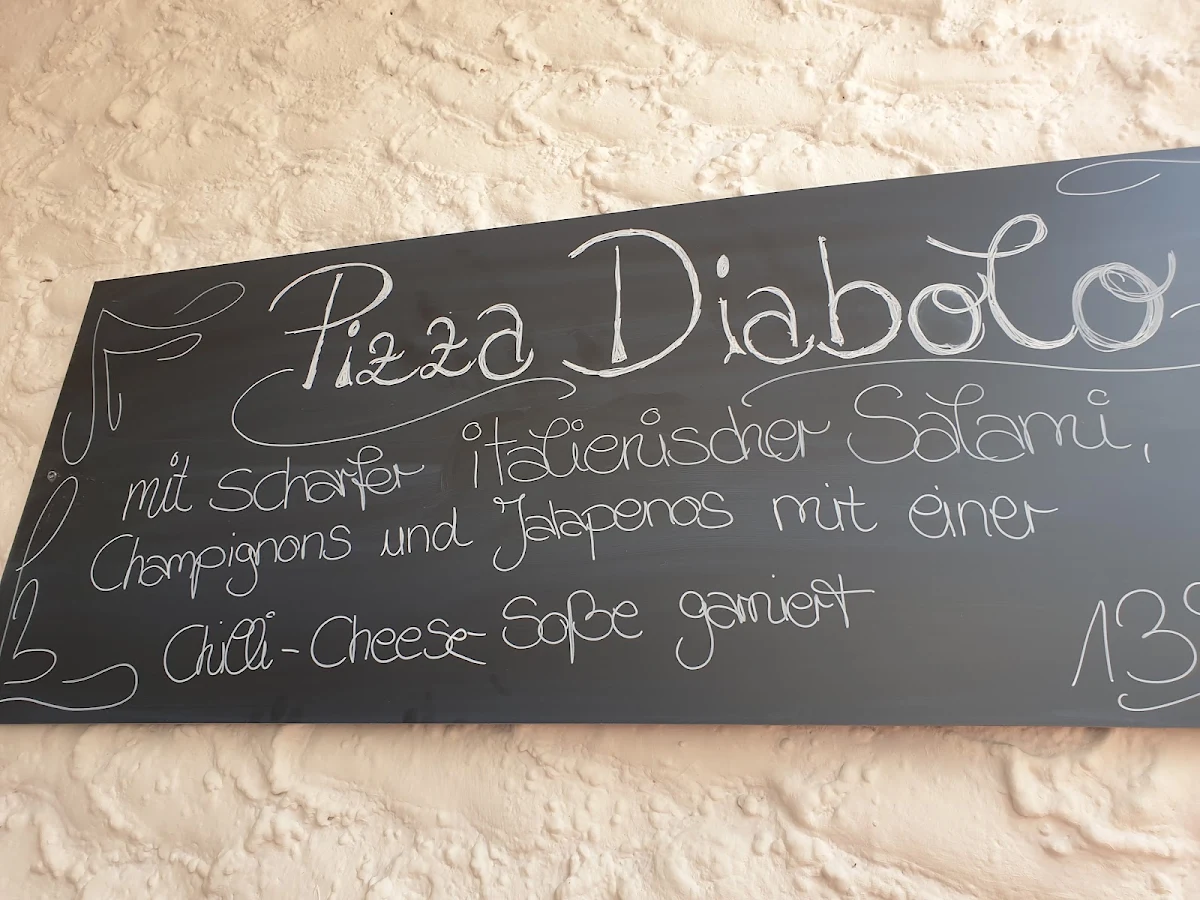 Pizza Diabolo
mit scharfer italienischer Salami,
Champignons und Jalapenos mit einer
Chilli-Cheese Soße garniert
13